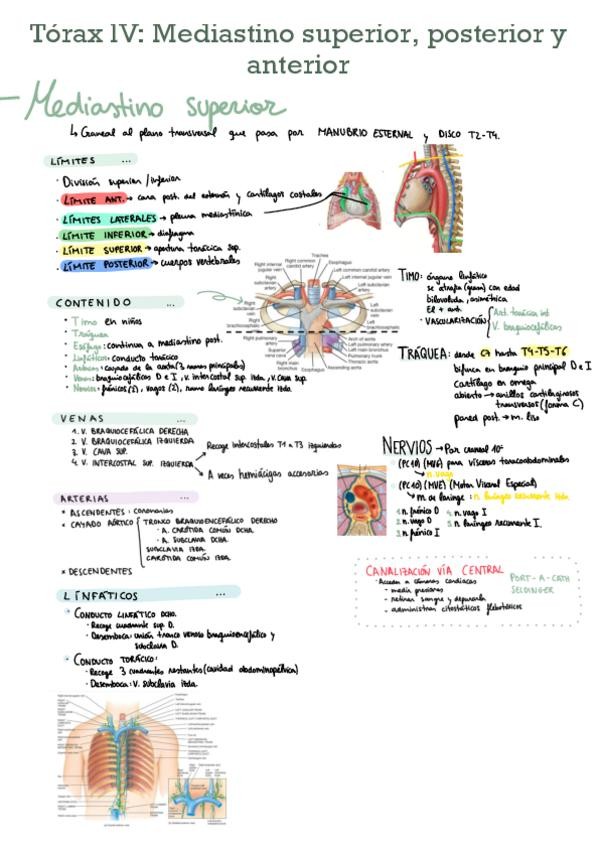 Tórax lV: Mediastino superior, posterior y
anterior
Mediastino superior
↳ Craneal al plano transversal que pasa por MANUBRIO ESTERNAL y DISCO T2-T4.
LÍMITES ...
· División superior/inferior
· LÍMITE ANT. → cara post. del esternón y cartílagos costales
· LÍMITES LATERALES → pleura mediastínica
· LÍMITE INFERIOR → diafragma
· LÍMITE SUPERIOR → apertura torácica sup.
· LÍMITE POSTERIOR → cuerpos vertebrales
CONTENIDO ...
· Timo en niños
· Tráquea
· Esófago: continua a mediastino post.
· Linfáticos: conducto torácico
· Arterias: cayado de la aorta (3 ramas principales)
· Venas: braquiocefálicas D e I, v. intercostal sup. Itda, v. cava sup.
· Nervios: frénicos (2), vagos (2), ramo laríngeo recurrente Itda.
Trachea
Esophagus
Right common carotid artery
Left common carotid artery
Right internal jugular vein
Left internal jugular vein
Right subclavian artery
Left subclavian artery
Right subclavian vein
Left subclavian vein
Right brachiocephalic vein
Left brachiocephalic vein
Right pulmonary artery
Arch of aorta
Left pulmonary artery
Left main bronchus
Superior vena cava
Pulmonary trunk
Right main bronchus
Thoracic aorta
Esophagus
TIMO: órgano linfático
se atrofia (grasa) con edad
bilobulado, asimétrica
· VASCULARIZACIÓN
Art. torácica int
V. braquiocefálicas
TRÁQUEA: desde C7 hasta T4-T5-T6
bifurca en bronquio principal D e I
Cartílago en omega
abierto → anillos cartilaginosos
transversos (forma C)
pared post. → m. liso
VENAS ...
1. V. BRAQUIOCEFÁLICA DERECHA
2. V. BRAQUIOCEFÁLICA IZQUIERDA
3. V. CAVA SUP.
4. V. INTERCOSTAL SUP. IZQUIERDA
Recoge intercostales T1 a T3 izquierdas
A veces hemiácigas accesorias
NERVIOS → Par craneal 10º
· (PC10) (MVG) para vísceras toracoabdominales
↳ n. vago
· (PC10) (MVE) (Motor Visceral Especial)
↳ m. de laringe: n. laríngeo recurrente Itda.
1. n. frénico D
2. n. vago D
3. n. frénico I
4. n. vago I
5. n. laríngeo recurrente I
ARTERIAS ...
* ASCENDENTES: coronarias
* CAYADO AÓRTICO
TRONCO BRAQUIOCEFÁLICO DERECHO
· A. CARÓTIDA COMÚN DCHA.
· A. SUBCLAVIA DCHA.
SUBCLAVIA IZDA.
CARÓTIDA COMÚN IZDA.
* DESCENDENTES
CANALIZACIÓN VÍA CENTRAL
· Acceden a cámaras cardíacas
- medir presiones
- retirar sangre y depurarla
- administran citostáticos flebotóxicos
PORT-A-CATH
SELDINGER
LINFÁTICOS ...
CONDUCTO LINFÁTICO DCHO.
· Recoge cuadrante sup D.
· Desemboca: unión tronco venoso braquiocefálico y
subclavia D.
CONDUCTO TORÁCICO:
· Recoge 3 cuadrantes restantes (cavidad abdominopélvica)
· Desemboca: V. subclavia Itda.